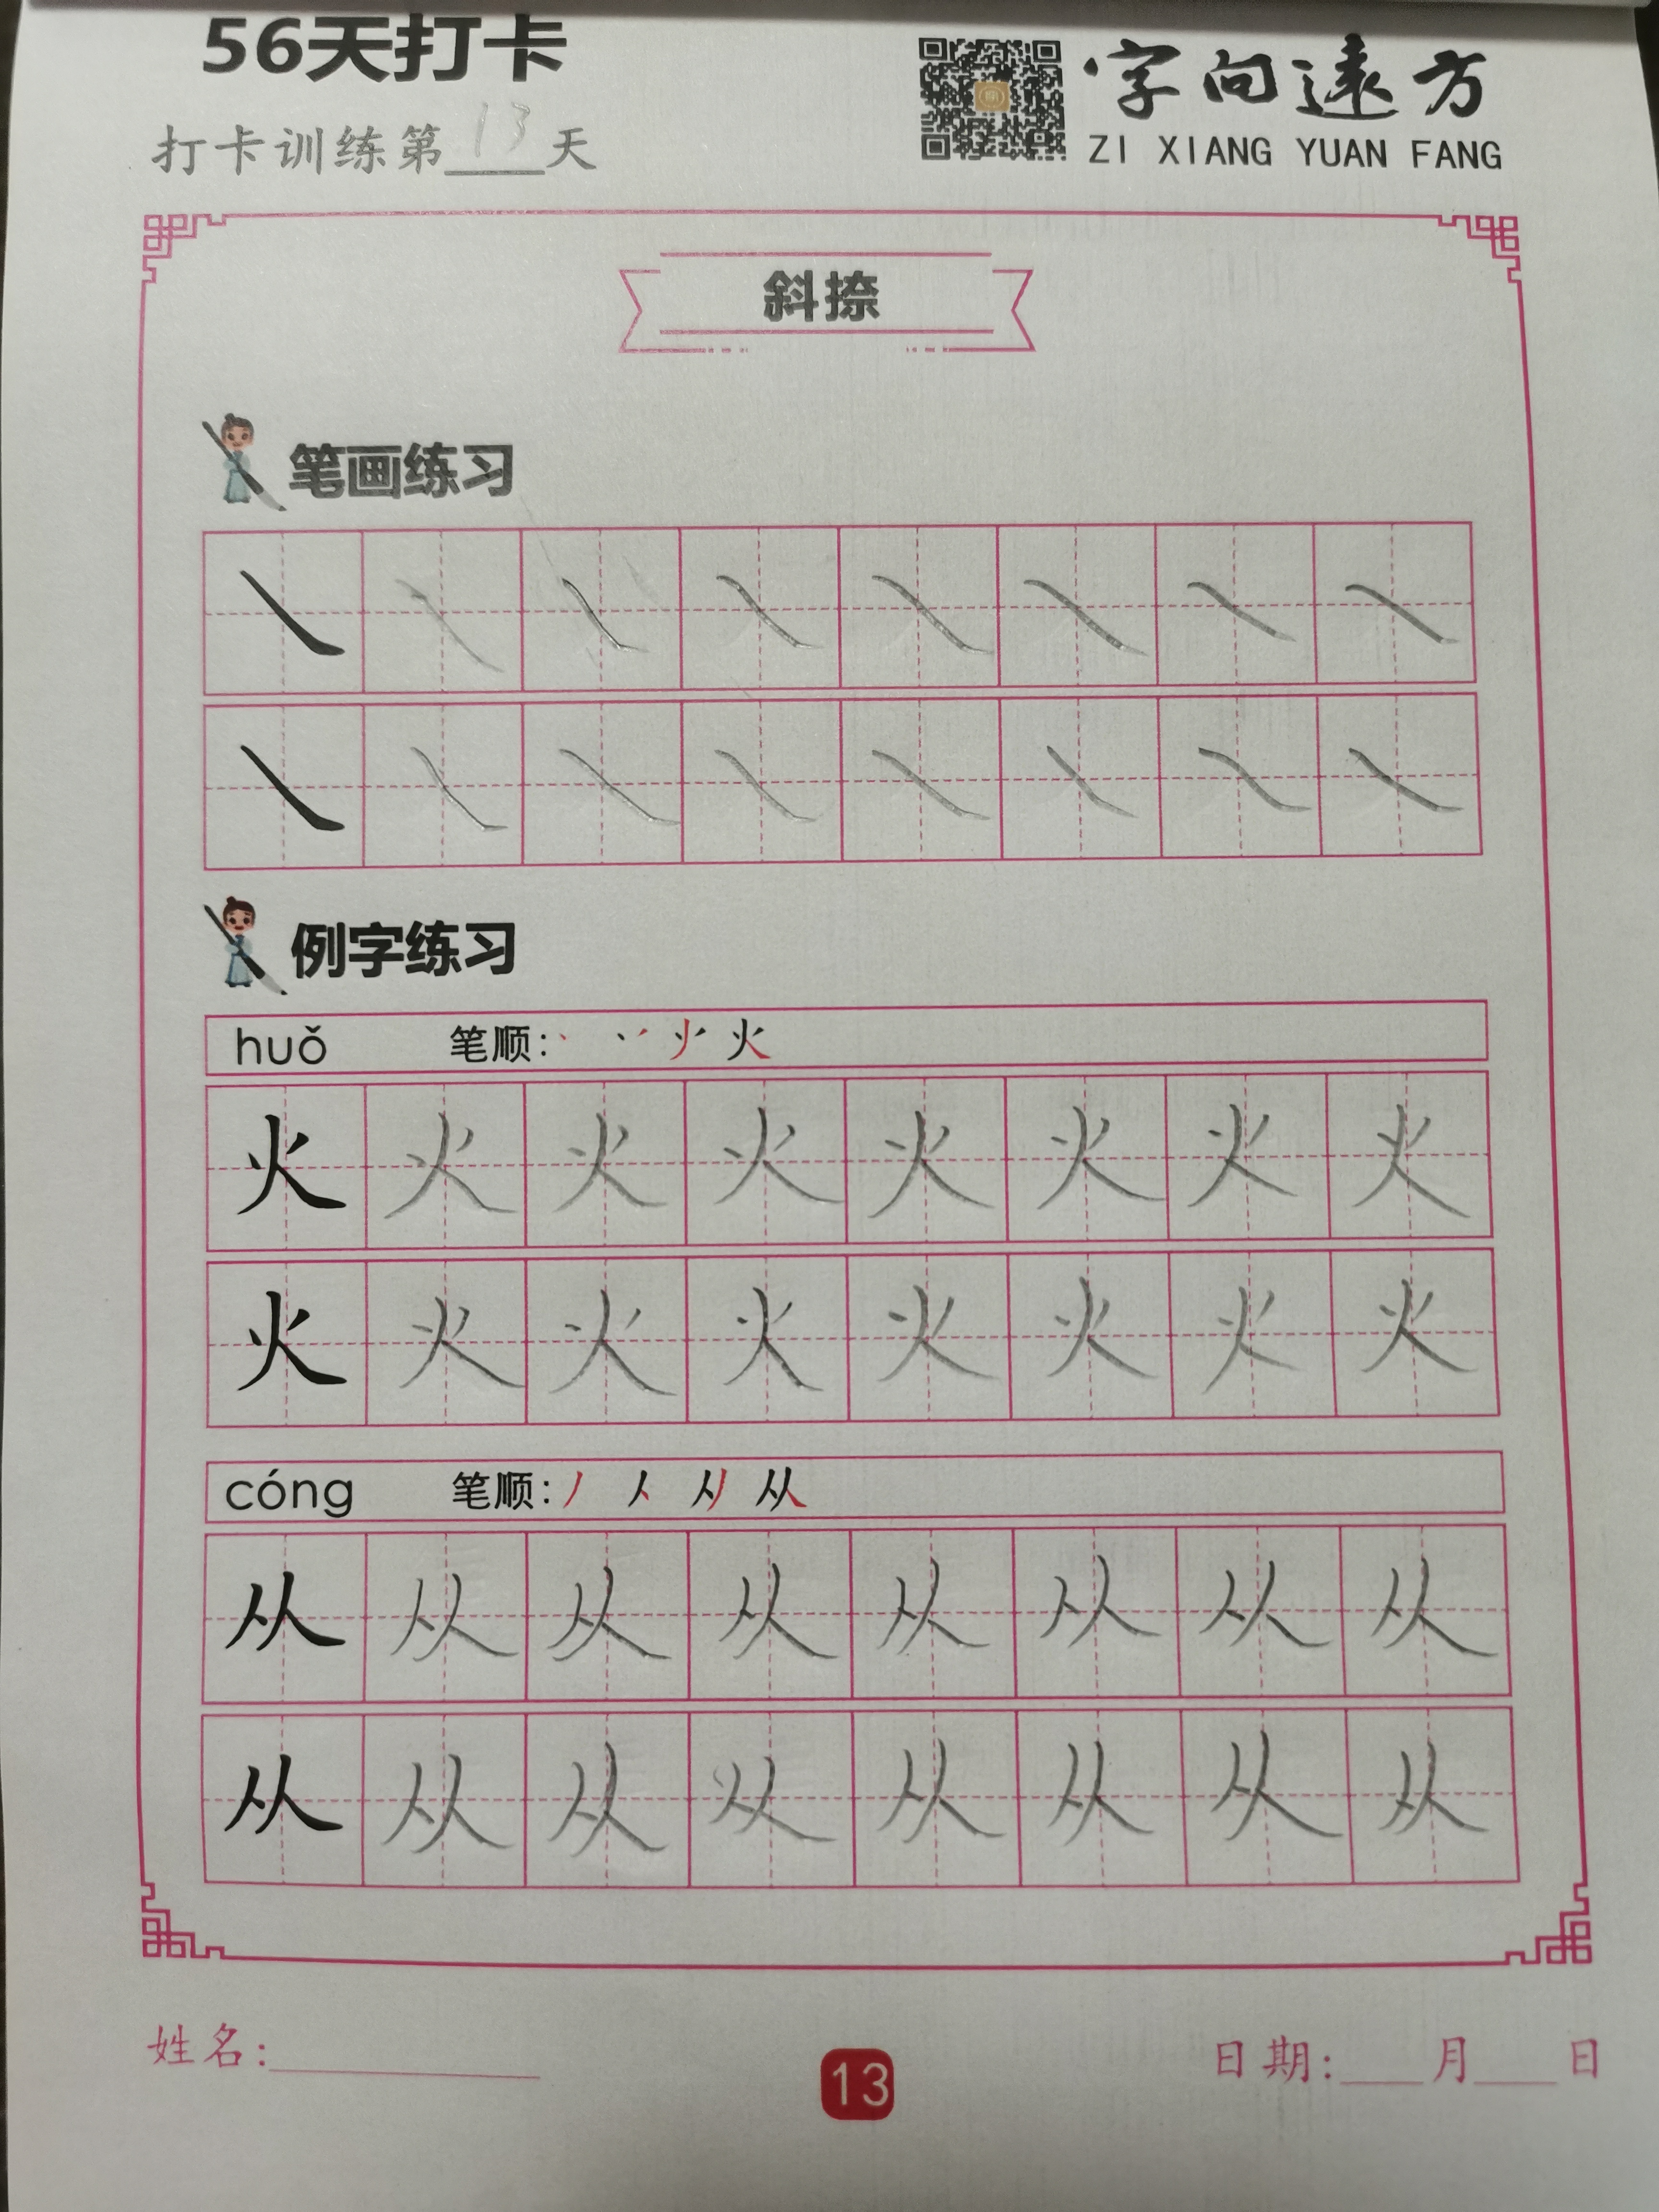 56天打卡
字向遠方
打卡训练第13天
ZI XIANG YUAN FANG
斜捺
笔画练习
㇏ ㇏ ㇏ ㇏ ㇏ ㇏ ㇏ ㇏
㇏ ㇏ ㇏ ㇏ ㇏ ㇏ ㇏ ㇏
例字练习
huǒ 笔顺: 火
火 火 火 火 火 火 火 火
火 火 火 火 火 火 火 火
cóng 笔顺: 丿 人 从
从 从 从 从 从 从 从 从
从 从 从 从 从 从 从 从
姓名:
13
日期: 月 日